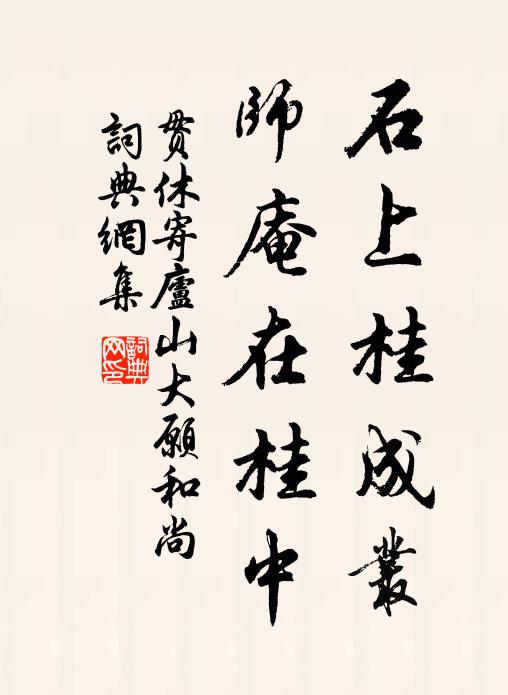 石上桂成叢
師庵在桂中
貫休寄廬山大願和尚
詞典網集
詞典網印